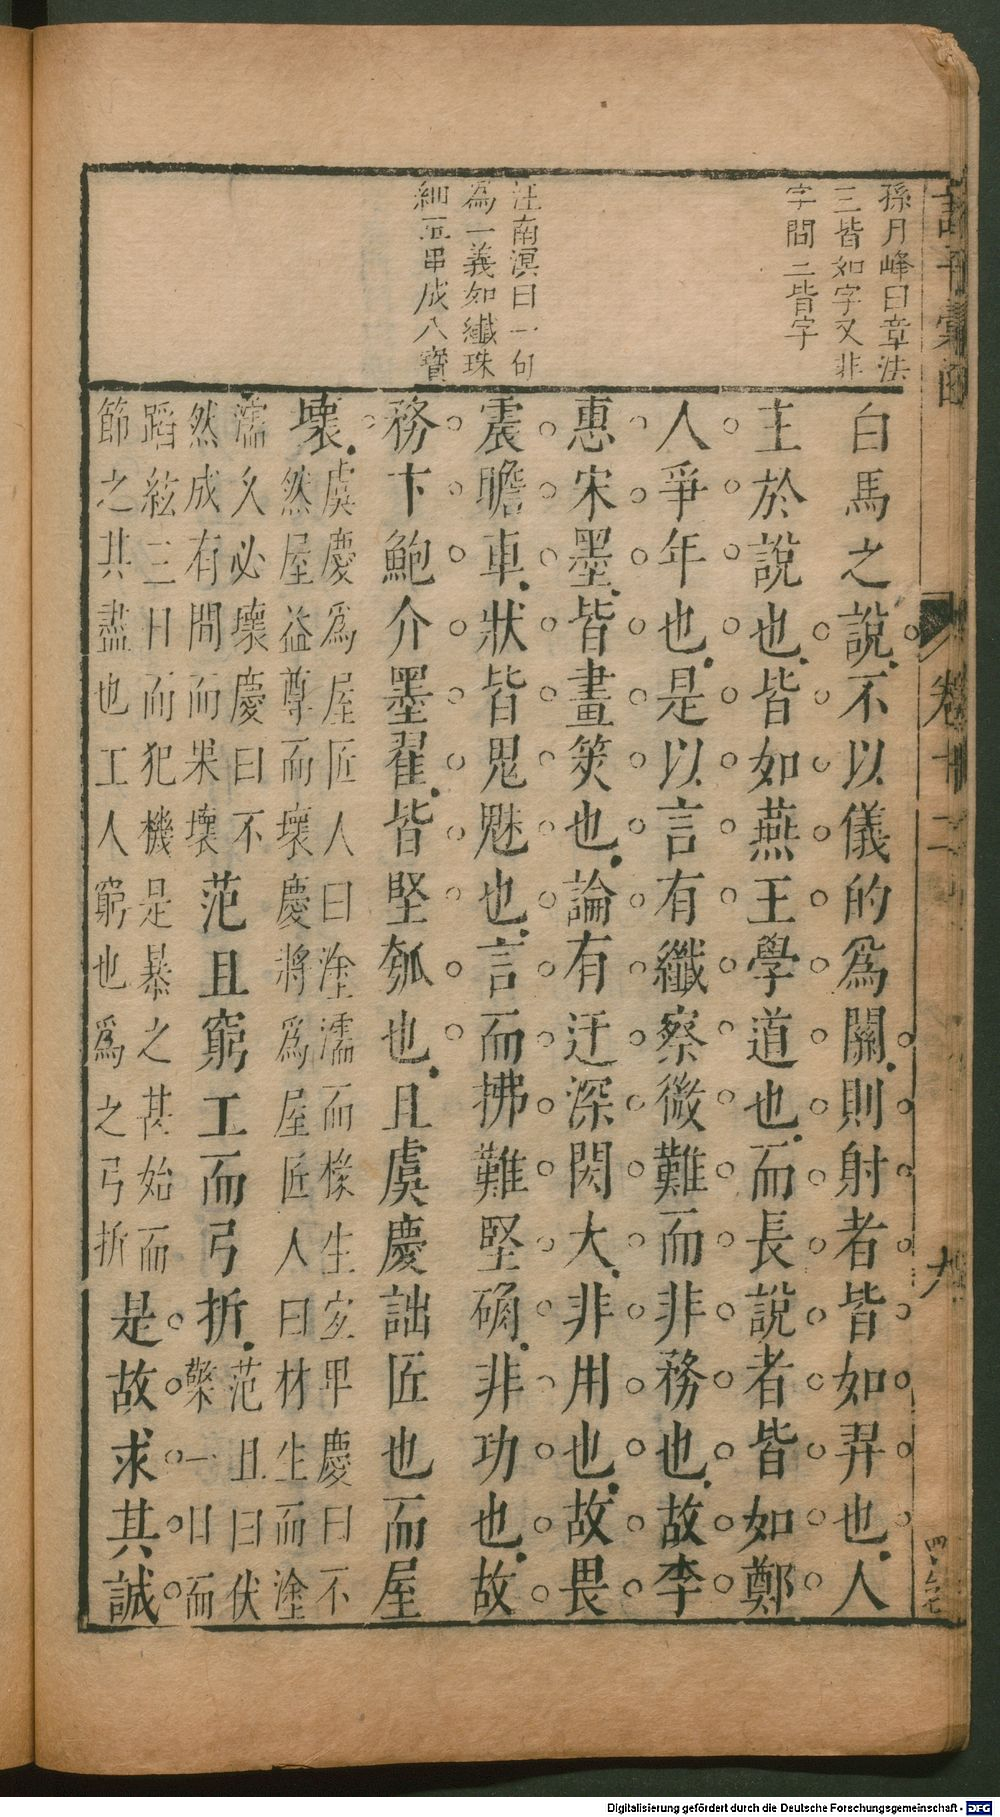 孫月峰曰章法
三皆如字又非
字間二皆字
汪南溟曰一句
為一義如纖珠
細至串成八寶
白馬之說不以儀的爲關則射者皆如羿也人
主於說也皆如燕王學道也而長說者皆如鄭
人爭年也是以言有纖察微難而非務也故李
惠宋墨皆畫筴也論有迂深閎大非用也故畏
震瞻車狀皆鬼魅也言而拂難堅确非功也故
務卞鮑介墨翟皆堅瓠也且虞慶詘匠也而屋
壞
虞慶爲屋匠人曰塗濡而椽生宎毕慶曰不
然屋益尊而壞慶將爲屋匠人曰材生而塗
濡久必壞慶曰不
然成有間而果壞
范且窮工而弓折
范且曰伏
檠一日而
蹈絃三日而犯機是暴之甚始而
節之其盡也工人窮也爲之弓折
是故求其誠
卷十二
九
四百六七
Digitalisierung gefördert durch die Deutsche Forschungsgemeinschaft - DFG